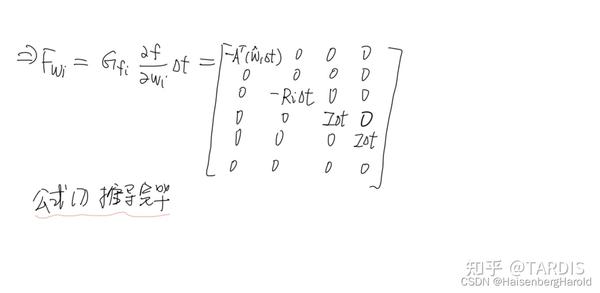 ⇒ F_{w_i} = G_{f_i} \frac{∂f}{∂w_i} Δt = \begin{bmatrix} -A^T(\hat{w}_iΔt) & 0 & 0 & 0 \\ 0 & 0 & 0 & 0 \\ 0 & -R_iΔt & 0 & 0 \\ 0 & 0 & IΔt & 0 \\ 0 & 0 & 0 & IΔt \\ 0 & 0 & 0 & 0 \end{bmatrix}
公式(7) 推导完毕
知乎 @TARDIS
CSDN @HaisenbergHarold